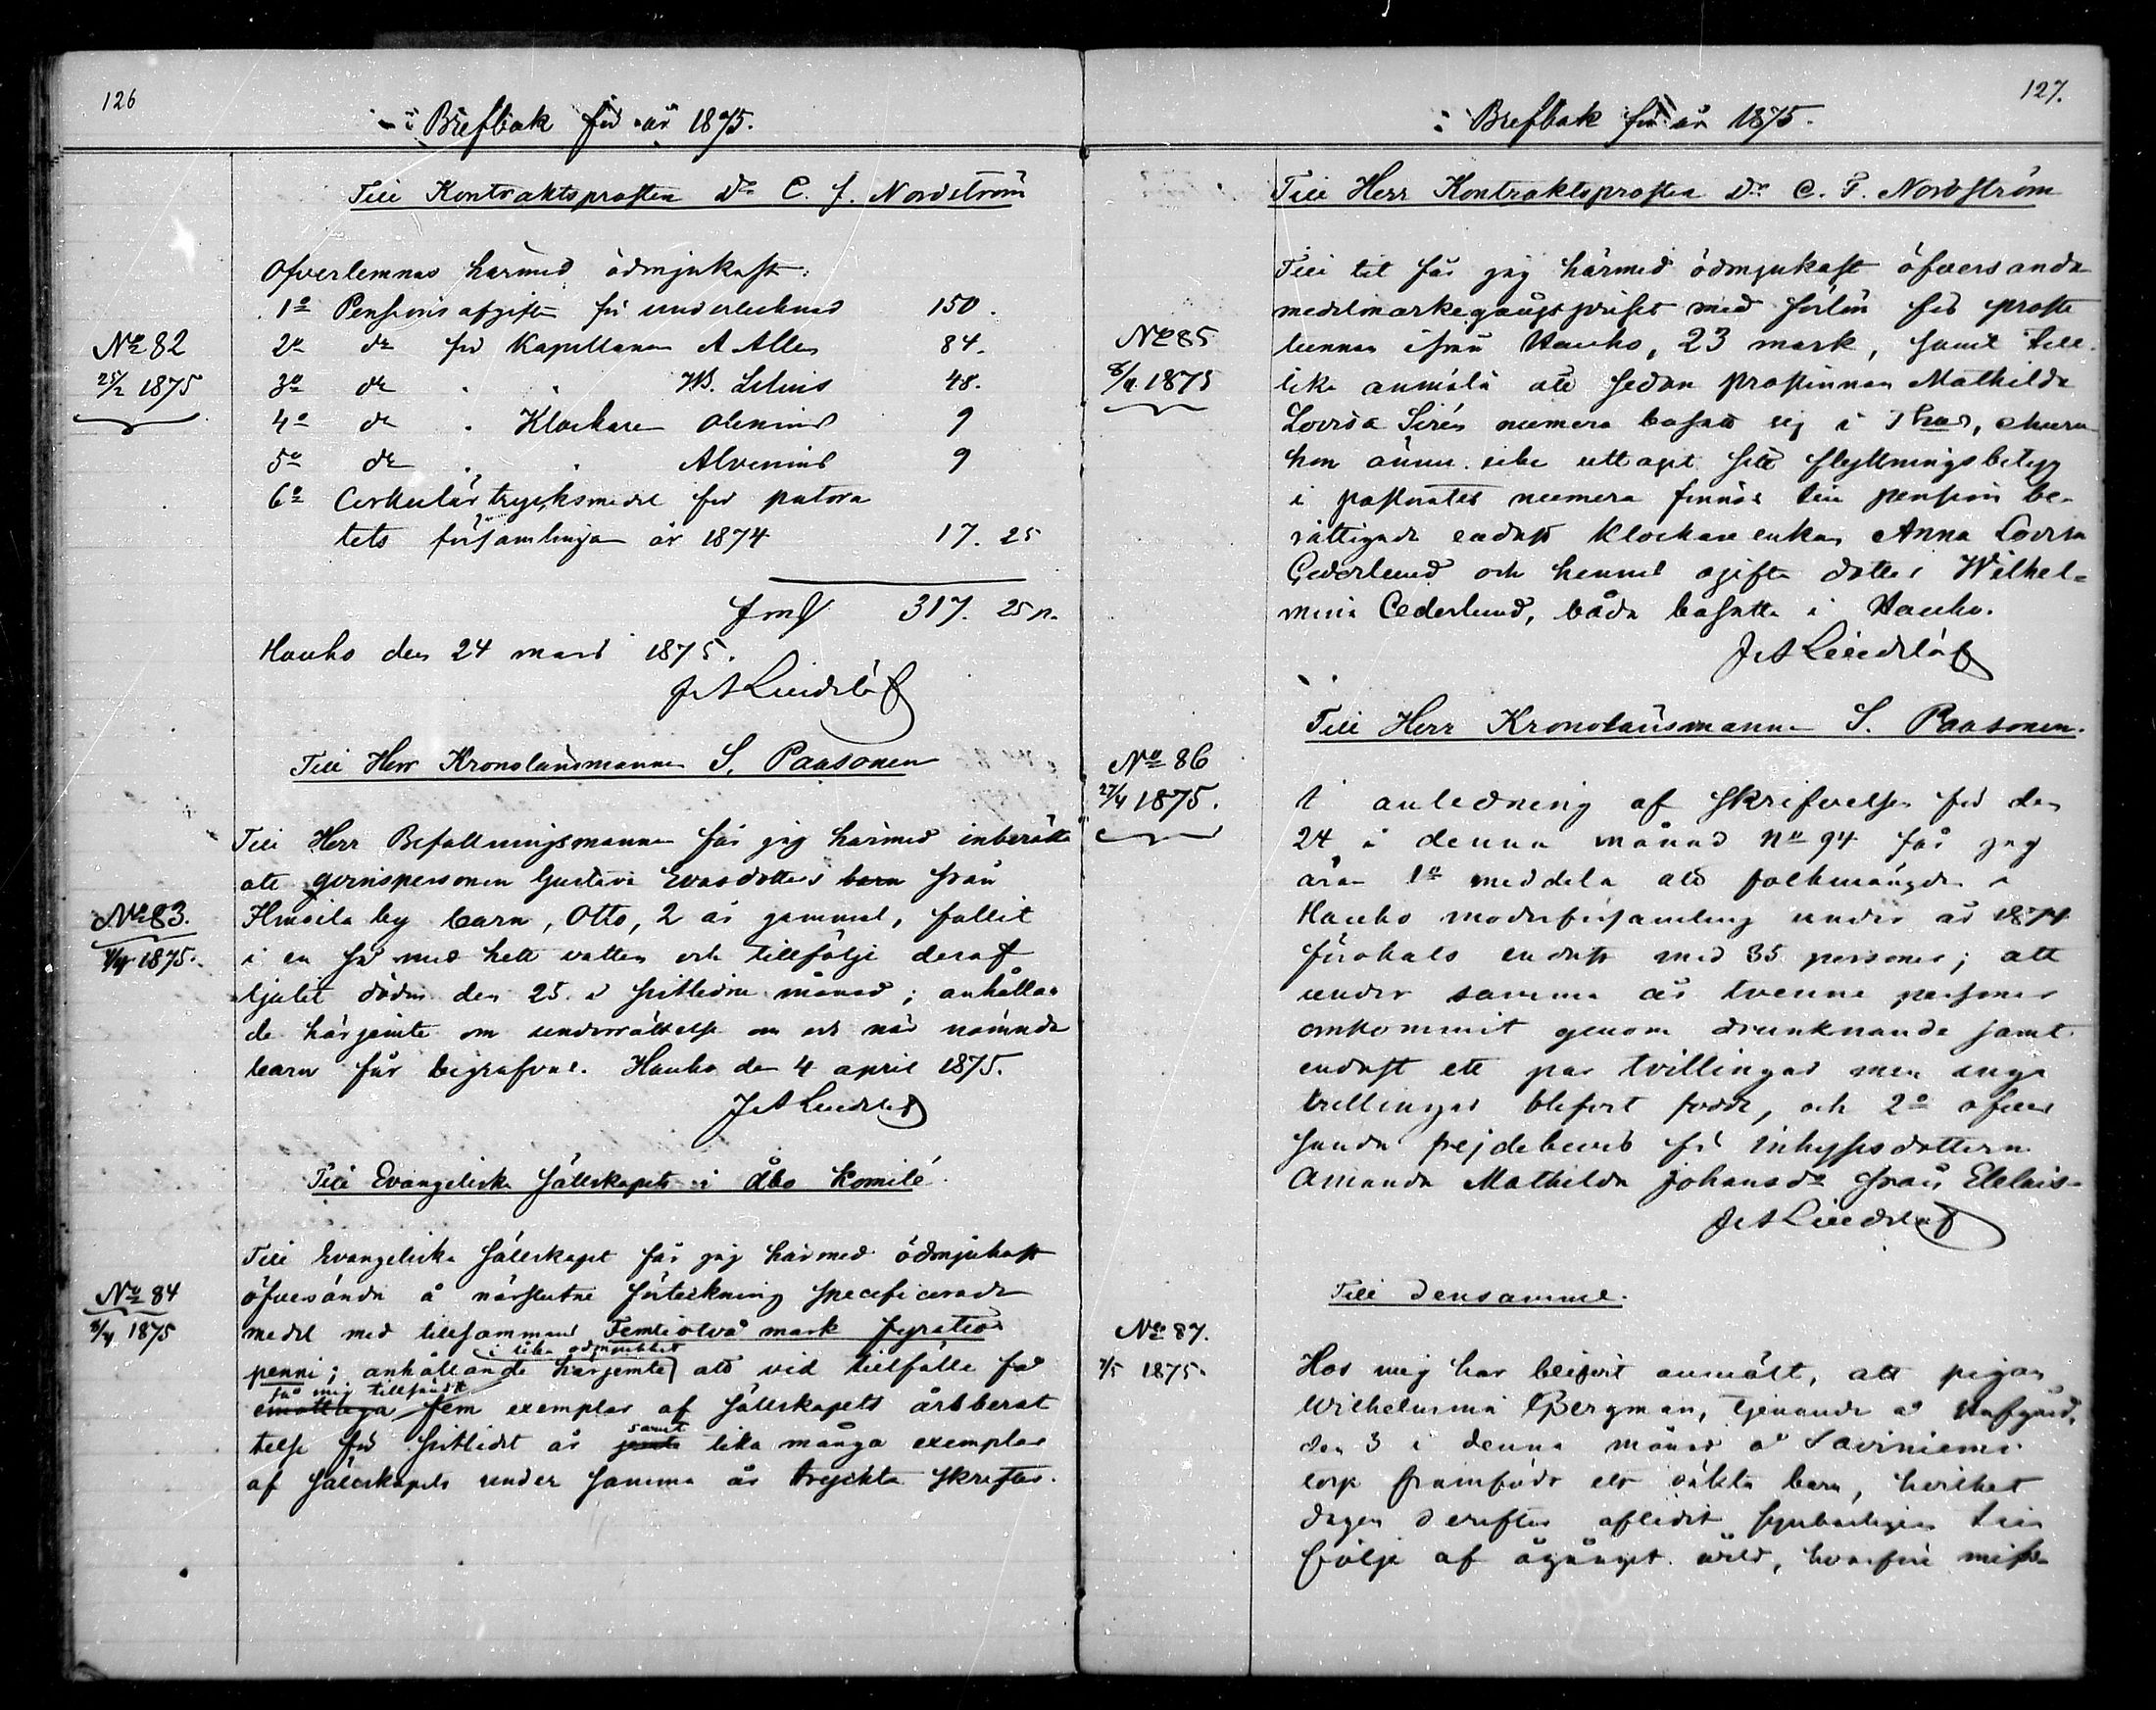 126
Brefbok för år 1875.
Till Kontraktsprosten Dr C. F. Nordström
Öfverlemnas härmed ödmjukast:
1o Pensionsafgiften för undertecknad 150.
No 82
2o do för Kapellanen A Allen 84.
25/2 1875
3o do " " W. Lilius 48.
4o do " Klockaren Olenius 9
5o do " " Alvenius 9
6o Cirkulär trycksmedel för pastora
tets församlingar år 1874 17. 25
Fmk 317. 25 p.
Hauho den 24 mars 1875.
J A Lindelöf
Till Herr Kronolänsmannen S. Paasonen
Till Herr Befallningsmannen får jag härmed inberätta
att qvinspersonen Gustava Evasdotters barn från
No 83.
by barn, Otto, 2 år gammal, fallit
4/4 1875.
i en så med hett vatten och tillfölje deraf
ljutit döden den 25 i sistledne månad; anhållan
de härjemte om underrättelse om och när nämnde
barn får begrafvas. Hauho den 4 april 1875.
J A Lindelöf
Till Evangeliska Sällskapets i Åbo Komité.
Till Evangeliska Sällskapet får jag härmed ödmjukast
No 84
öfversända å närslutne förteckning specificerade
8/4 1875
medel med tillsammans Femtiotvå mark fyratio
i lika ödmjukhet
penni; anhållande härjemte att vid tillfälle få
få mig tillsändt
emottaga fem exemplar af Sällskapets årsberät
samt
telse för sistlidet år jemte lika många exemplar
af Sällskapets under samma år tryckta skrifter.
127.
Brefbok för år 1875.
Till Herr Kontraktsprosten Dr C. F. Nordström
Till tit får jag härmed ödmjukast öfversända
medelmarkegångspriset med förlön för proste
No 85
ifrån Hauho, 23 mark, samt till
8/4 1875
lika anmäla att sedan Prostinnan Mathilda
Lovisa Sirén numera bosatt sig i
hon ännu icke uttagit sitt flyttningsbetyg
i pastoratet numera finnes till pension be-
rättigade endast Klockare enkan Anna Lovisa
Cederlund och hennes ogifta dotter Wilhel-
mina Cederlund, båda bosatta i Hauho.
J A Lindelöf
Till Herr Kronolänsmannen S. Paasonen.
No 86
27/4 1875.
I anledning af skrifvelse för den
24 i denna månad No 94 får jag
äran 1o meddela att folkmängden i
Hauho moderförsamling under år 1874
förökats endast med 35 personer; att
under samma år tvenne personer
omkommit genom drunknande samt
endast ett par tvillingar men inga
trillingar blifvit födde, och 2o öfver
sända frejdebevis för inhysesdottern
Amanda Mathilda Johansdr från
J A Lindelöf
Till Densamme.
No 87.
7/5 1875.
Hos mig har blifvit anmält, att pigan
Wilhelmina Bergman, tjenande å
den 3 i denna månad å Saviniemi
torp framfödt ett oäkta barn, hvilket
dagen derefter aflidit synbarligen till
följe af våld, hvarföre miss-